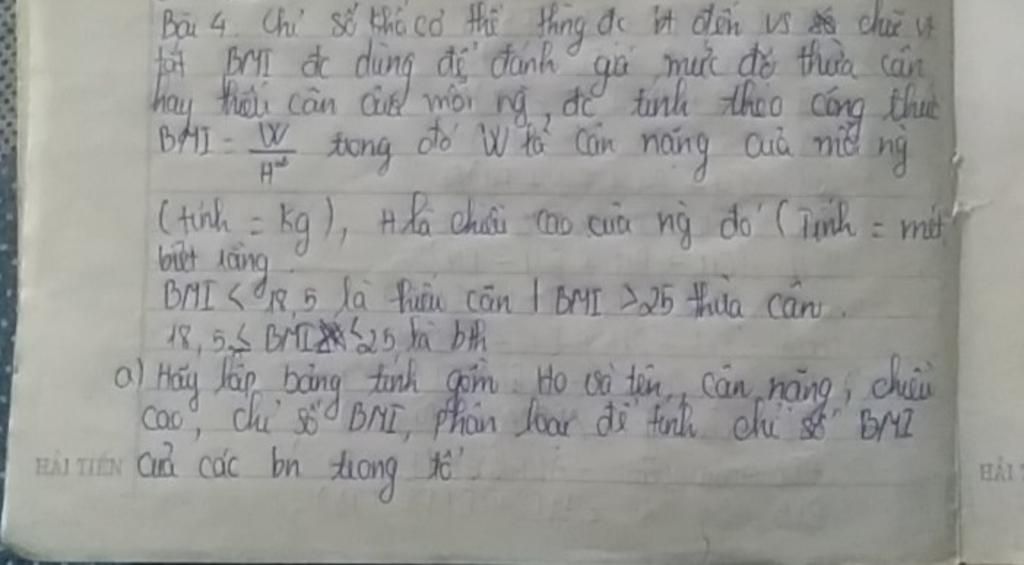 Bài 4. Chỉ số khối cơ thể thừng đc bt đến vs chữ vt
tắt BMI đc dùng để đánh giá mức độ thừa cân
hay thiếu cân của mỗi ng, đc tính theo công thức
BMI = W/H² trong đó W là cân nặng của mỗi ng
(tính = kg), H là chiều cao của ng đó (Tính = mét
biết rằng
BMI < 18,5 là thiếu cân | BMI > 25 thừa cân.
18,5 ≤ BMI ≤ 25 là bth
a) Hãy lập bảng tính gồm Họ và tên, cân nặng, chiều
cao, chỉ số BMI, phân loại để tính chỉ số BMI
HẢI TIẾN của các bn trong tổ
HẢI